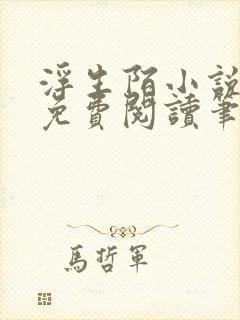 浮生陌小說
免費閱讀筆
馬哲軍